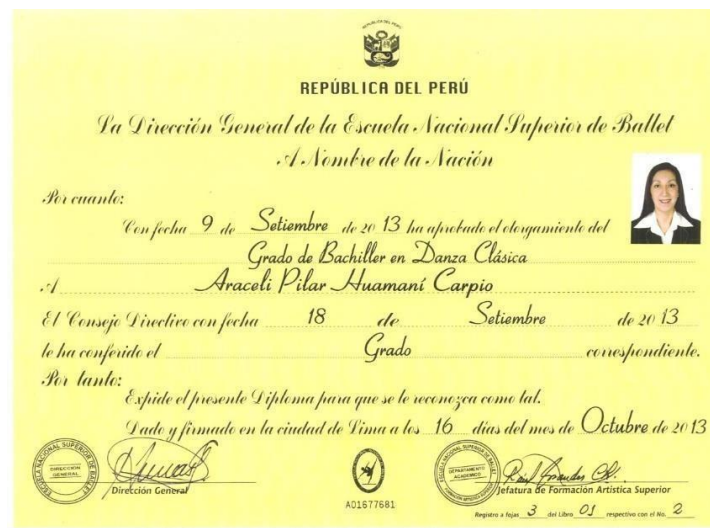 REPÚBLICA DEL PERÚ
REPÚBLICA DEL PERÚ
La Dirección General de la Escuela Nacional Superior de Ballet
A Nombre de la Nación
Por cuanto:
Con fecha 9 de Setiembre de 20 13 ha aprobado el otorgamiento del
Grado de Bachiller en Danza Clásica
A Araceli Pilar Huamaní Carpio
El Consejo Directivo con fecha 18 de Setiembre de 20 13
le ha conferido el Grado correspondiente.
Por tanto:
Expide el presente Diploma para que se le reconozca como tal.
Dado y firmado en la ciudad de Lima a los 16 días del mes de Octubre de 20 13
ESCUELA NACIONAL SUPERIOR DE BALLET
DIRECCIÓN
GENERAL
Dirección General
A01677681
DEPARTAMENTO
ACADEMICO
Jefatura de Formación Artística Superior
Registro a fojas 3 del Libro 01 respectivo con el No. 2